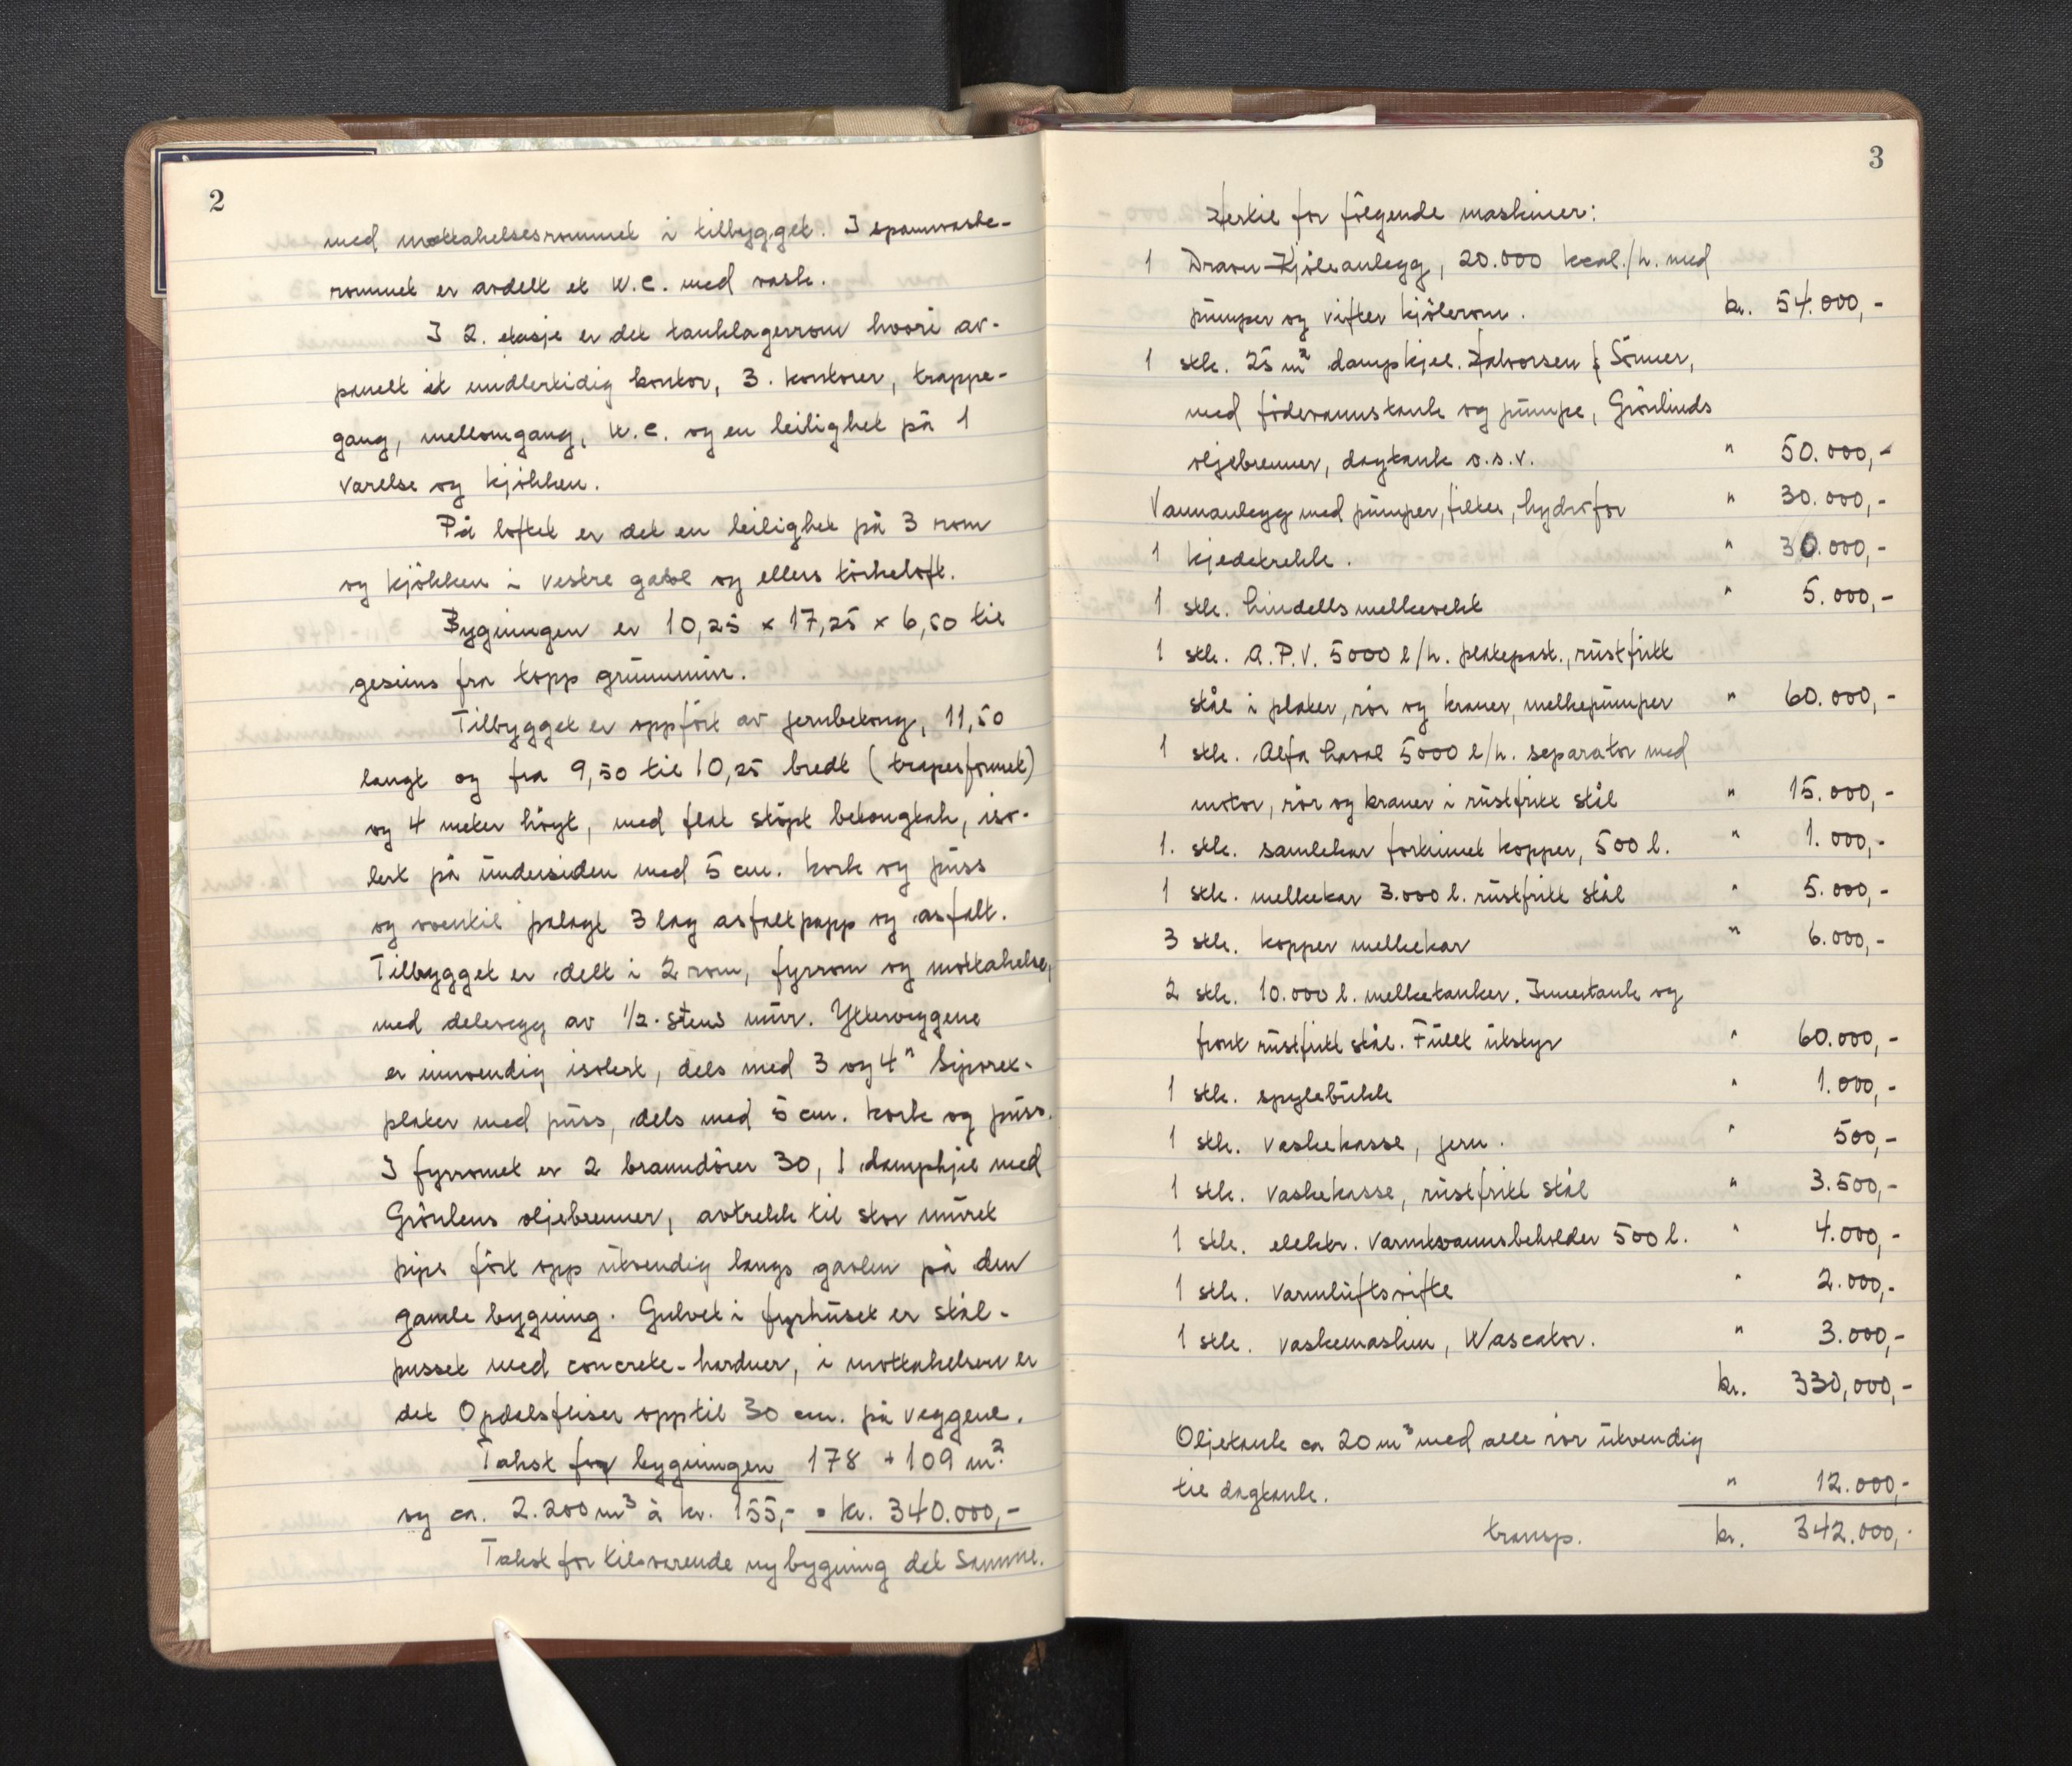 2
med mottakelsesrommet i tilbygget. I spannvaske-
rommet er avdelt et W.C. med vask.
I 2. etasje er det tanklagerrom hvori av-
panelt et midlertidig kontor, 3. kontorer, trappe-
gang, mellomgang, W.C. og en leilighet på 1
værelse og kjökken.
På loftet er det en leilighet på 3 rom
og kjökken i vestre gavl og ellers törkeloft.
Bygningen er 10,25 x 17,25 x 6,50 til
gesims fra topp grunnmur.
Tilbygget er oppfört av jernbetong, 11,50
langt og fra 9,50 til 10,25 bredt (trapesformet)
og 4 meter höyt, med flat stöpt betongtak, iso-
lert på undersiden med 5 cm. kork og puss
og oventil pålagt 3 lag asfaltpapp og asfalt.
Tilbygget er delt i 2 rom, fyrrom og mottakelse,
med delevegg av 1/2-stens mur. Ytterveggene
er innvendig isolert, dels med 3 og 4" Siporex-
plater med puss, dels med 5 cm. kork og puss.
I fyrromet er 2 branndörer 30, 1 dampkjel med
Grönlens oljebrenner, avtrekk til stor muret
pipe fört opp utvendig langs gavlen på den
gamle bygning. Gulvet i fyrhuset er stål-
pusset med concrete-hardner, i mottakelsen er
det Opdalsfliser opp til 30 cm. på veggene.
Takst for bygningen 178 + 109 m2
og ca. 2.200 m3 à kr. 155,- = kr. 340.000,-
Takst for tilsvarende nybygning det samme.
3
Hertil for fölgende maskiner:
1 Dravn-Kjöleanlegg, 20.000 kcal./h. med
pumper og vifter kjölerom. kr. 54.000,-
1 stk. 25 m2 dampkjel. Halvorsen & Sönner,
med födevannstank og pumpe, Grönlunds
oljebrenner, dagtank o.s.v. " 50.000,-
Vannanlegg med pumper, filter, hydrofor " 30.000,-
1 kjedetrekk. " 30.000,-
1 stk. Lindells melkevekt " 5.000,-
1 stk. A.P.V. 5000 l/h. platepast., rustfritt
stål i plater, rör og kraner, melkepumper " 60.000,-
1 stk. Alfa Laval 5000 l/h. separator med
motor, rör og kraner i rustfritt stål " 15.000,-
1. stk. samlekar fortinnet kopper, 500 l. " 1.000,-
1 stk. melkekar 3.000 l. rustfritt stål " 5.000,-
3 stk. kopper melkekar " 6.000,-
2 stk. 10.000 l. melketanker. Innertank og
front rustfritt stål. Fullt utstyr " 60.000,-
1 stk. spylebukk " 1.000,-
1 stk. vaskekasse, jern. " 500,-
1 stk. vaskekasse, rustfritt stål " 3.500,-
1 stk. elektr. varmtvannsbeholder 500 l. " 4.000,-
1 stk. varmluftsvifte " 2.000,-
1 stk. vaskemaskin, Wascator. " 3.000,-
kr. 330,000,-
Oljetank ca 20 m3 med alle rör utvendig
til dagtank. " 12.000,-
transp. kr. 342.000,-